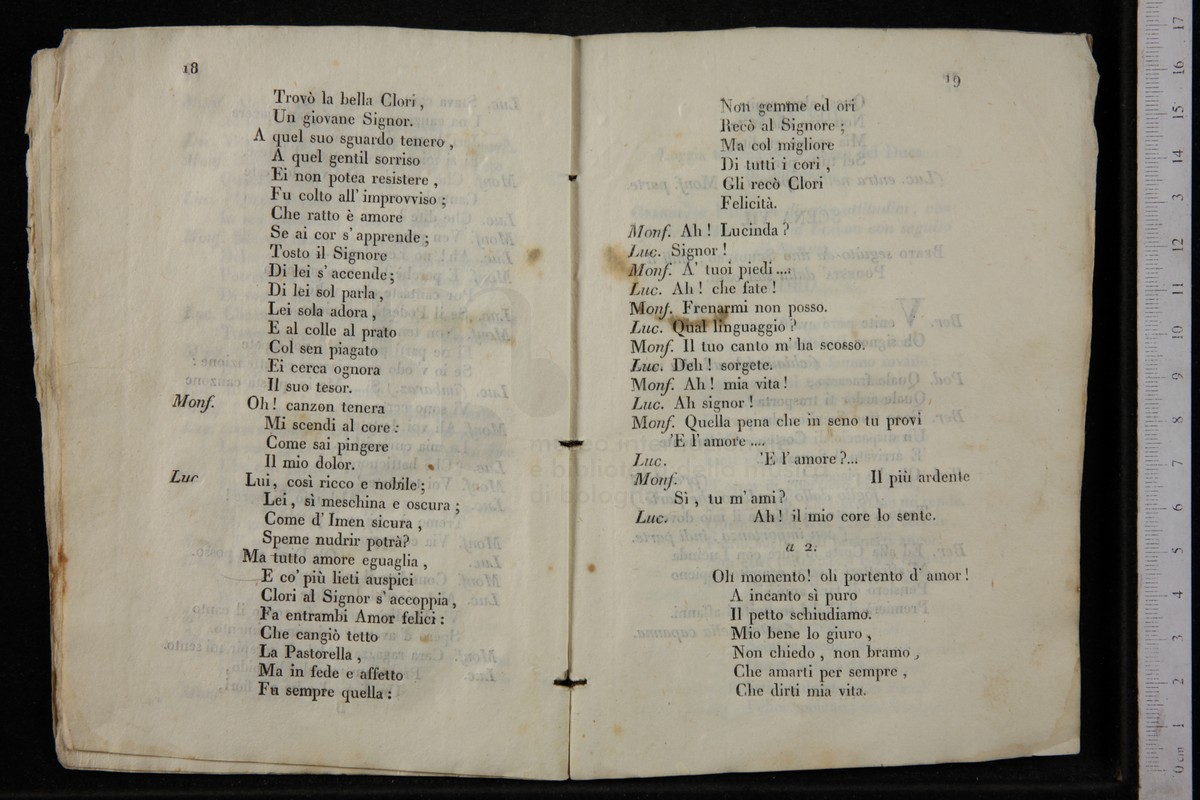 18
Trovò la bella Clori ,
Un giovane Signor.
A quel suo sguardo tenero ,
A quel gentil sorriso
Ei non potea resistere ,
Fu colto all' improvviso ;
Che ratto è amore
Se ai cor s' apprende ;
Tosto il Signore
Di lei s' accende ;
Di lei sol parla ,
Lei sola adora ,
E al colle al prato
Col sen piagato
Ei cerca ognora
Il suo tesor.
Monf. Oh ! canzon tenera
Mi scendi al core :
Come sai pingere
Il mio dolor.
Luc Lui, così ricco e nobile ;
Lei , sì meschina e oscura ;
Come d' Imen sicura ,
Speme nudrir potrà?
Ma tutto amore eguaglia ,
E co' più lieti auspici
Clori al Signor s' accoppia ,
Fa entrambi Amor felici :
Che cangiò tetto
La Pastorella ,
Ma in fede e affetto
Fu sempre quella :
19
Non gemme ed ori
Recò al Signore ;
Ma col migliore
Di tutti i cori ,
Gli recò Clori
Felicità.
Monf. Ah ! Lucinda ?
Luc. Signor !
Monf. A' tuoi piedi ....
Luc. Ah ! che fate !
Monf. Frenarmi non posso.
Luc. Qual linguaggio ?
Monf. Il tuo canto m' ha scosso.
Luc. Deh ! sorgete.
Monf. Ah ! mia vita !
Luc. Ah signor !
Monf. Quella pena che in seno tu provi
'E l' amore ....
Luc. 'E l' amore ?...
Monf. Il più ardente
Sì , tu m' ami ?
Luc. Ah ! il mio core lo sente.
a 2.
Oh momento! oh portento d' amor !
A incanto sì puro
Il petto schiudiamo.
Mio bene lo giuro ,
Non chiedo , non bramo ,
Che amarti per sempre ,
Che dirti mia vita.